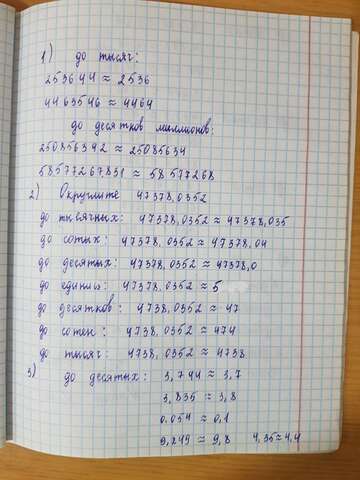 1) до тысяч:
253644 ≈ 2536
4463546 ≈ 4464
до десятков миллионов:
250856342 ≈ 25085634
58577267831 ≈ 58577268
2) Округлите 47378,0352
до тысячных: 47378,0352 ≈ 47378,035
до сотых: 47378,0352 ≈ 47378,04
до десятых: 47378,0352 ≈ 47378,0
до единиц: 47378,0352 ≈ 5
до десятков: 4738,0352 ≈ 47
до сотен: 4738,0352 ≈ 474
до тысяч: 4738,0352 ≈ 4738
3) до десятых: 3,744 ≈ 3,7
3,835 ≈ 3,8
0,054 ≈ 0,1
9,849 ≈ 9,8 4,35 ≈ 4,4